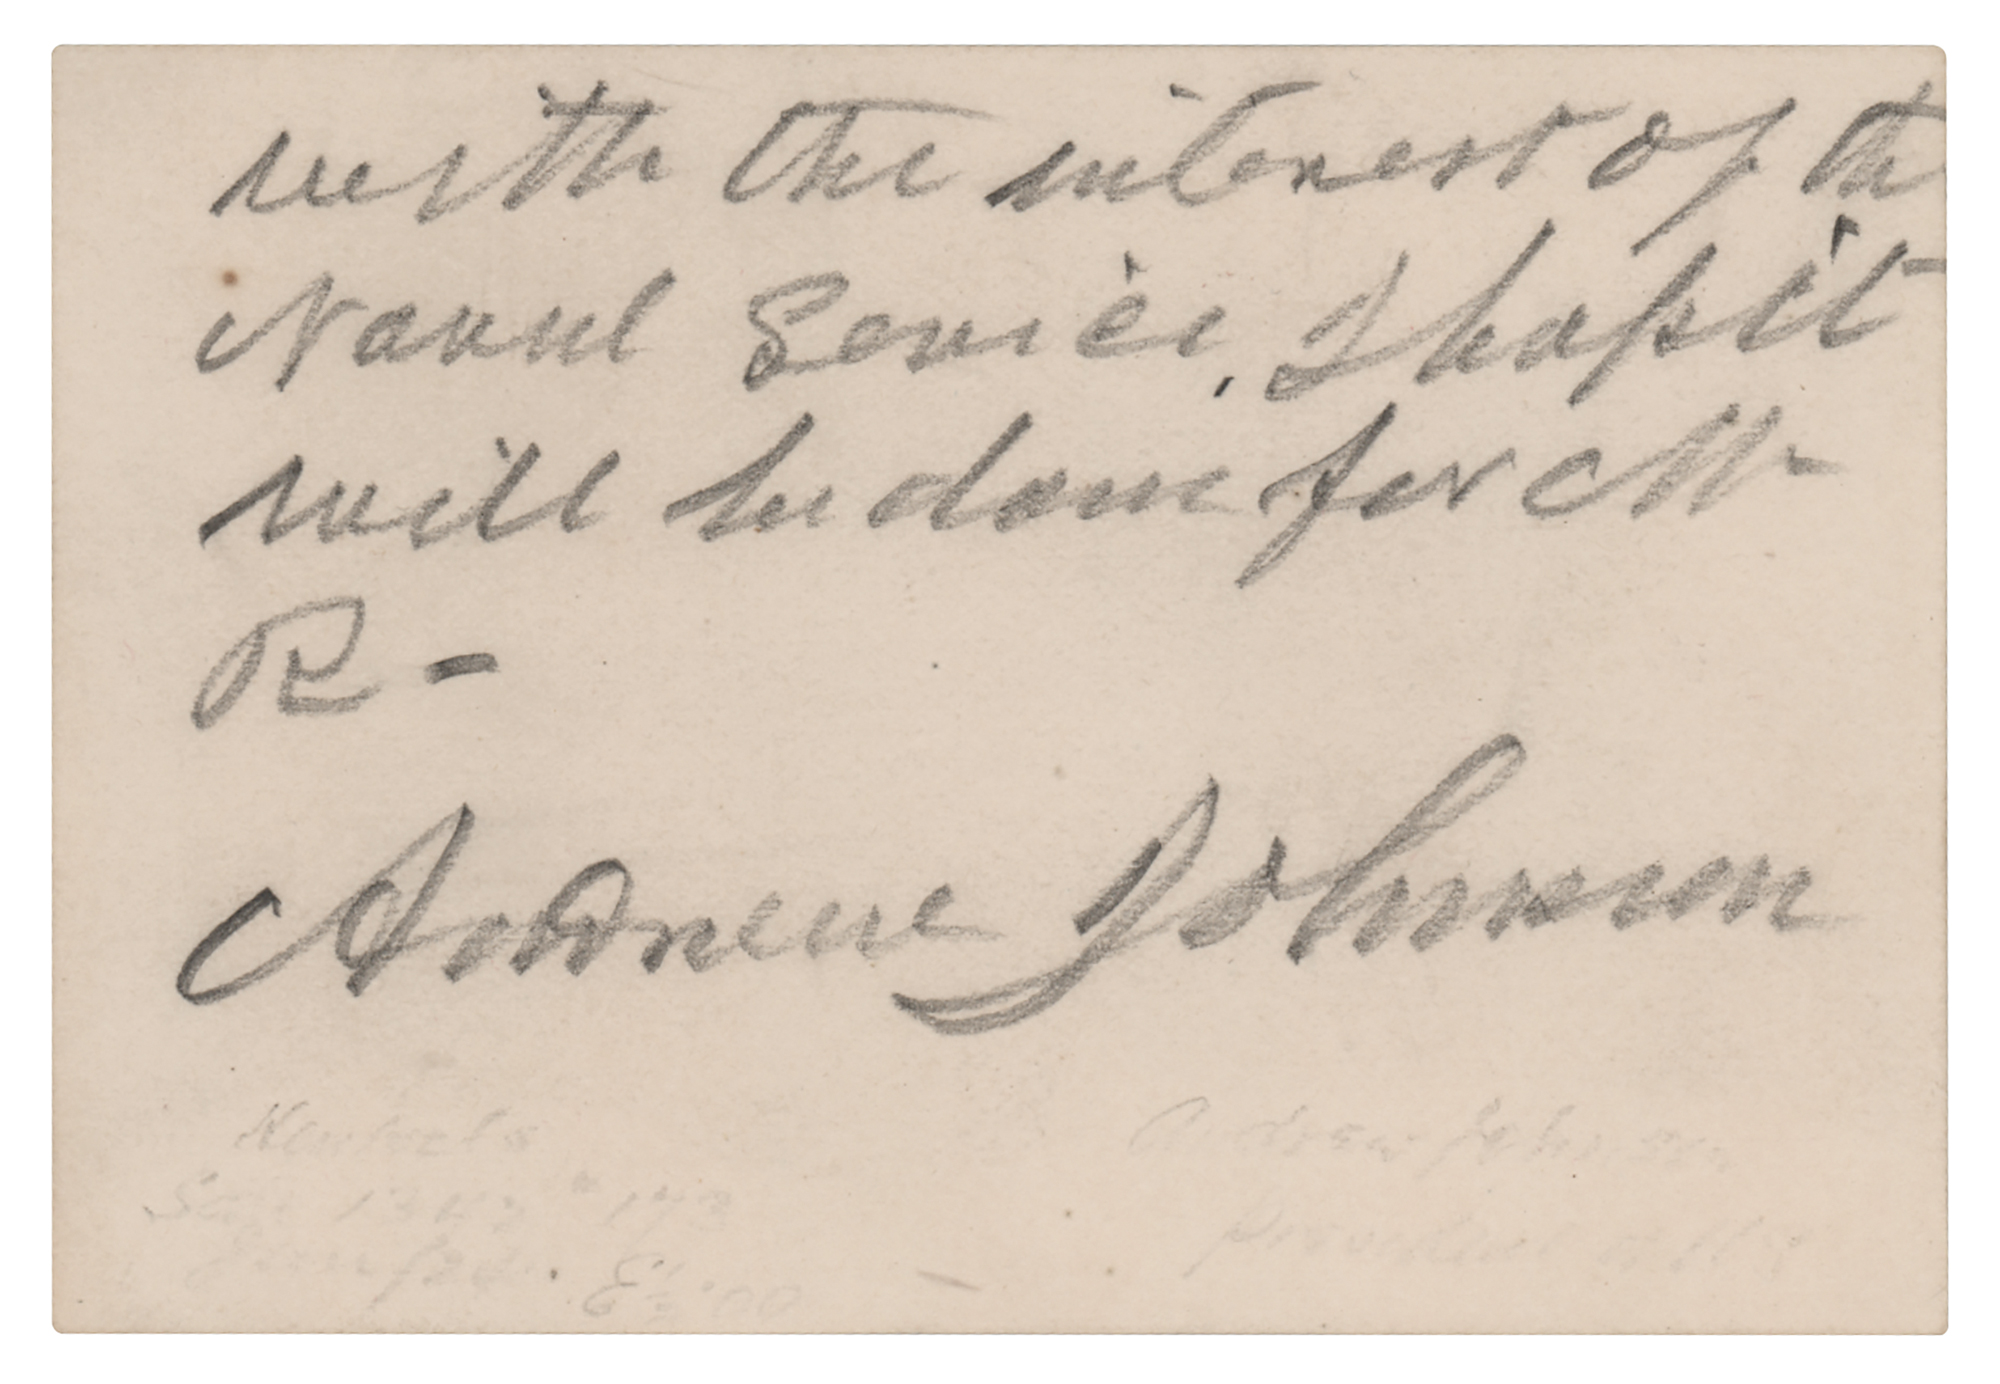 with the interest of the
Naval Service, I hope it
will be done for Mr
R-
Andrew Johnson
Andrew Johnson
President of U.S.